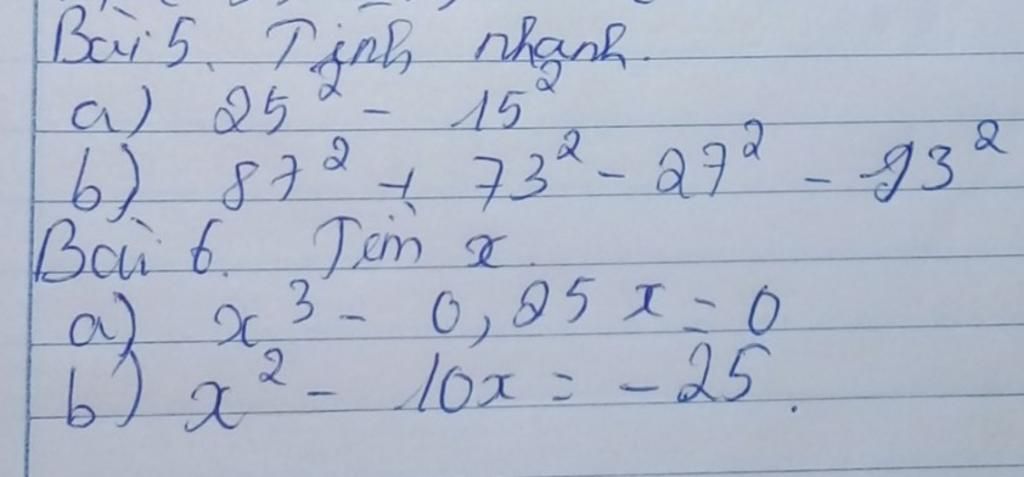 Bài 5. Tính nhanh.
a) 25² - 15²
b) 87² + 73² - 27² - 93²
Bài 6. Tìm x.
a) x³ - 0,25 x = 0
b) x² - 10x = - 25.